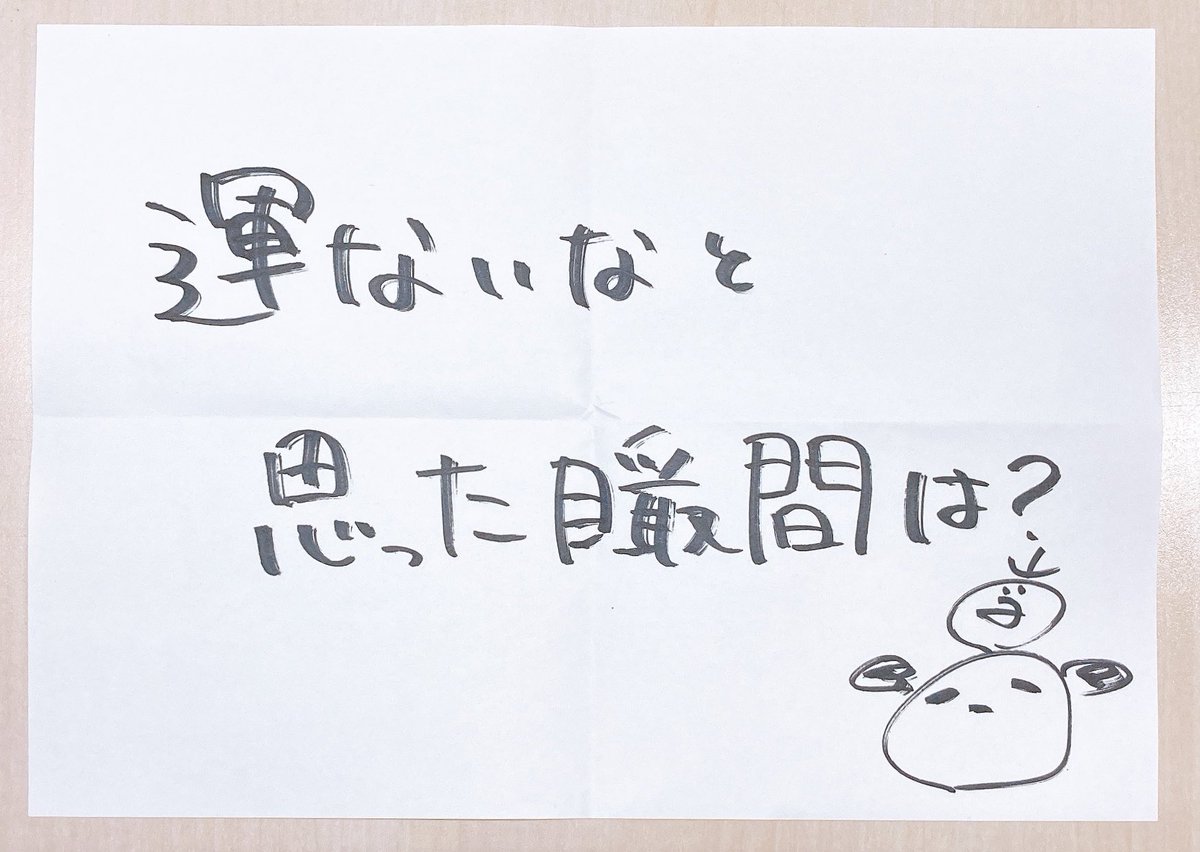 運ないなと
思った瞬間は?